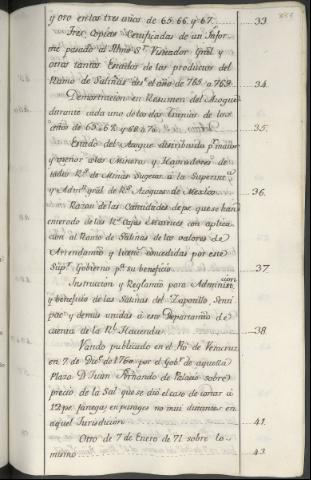 y oro en los tres años de 65. 66. y 67. 33.
Tres Copias Certificadas de un Infor-
me pasado al Yllmo Sr. Visitador Gral. y
otros tantos Estados de los productos del
Ramo de Salinas desde el año de 765. a 769. 34.
Demostracion en Resumen del Azogue
durante cada uno de los dos de los
años de 65. a 67. y 68 a 70. 35.
Estado del Azogue distribuido pr. mayor
y menor a los Mineros y Hazendados de
todos Rs. de Minas Sugetos a la Superintcia.
y Admon. gral de Rs. Azogues de Mexico. 36.
Razon de las Cantidades de ps. que se han
enterado de las Rs. Cajas con aplica-
cion al Ramo de Salinas de los valores de
Arrendamto. y licens. concedidas por este
Supr. Govierno pa. su beneficio. 37.
Instruccion y Reglamto. para Administrcion.
y beneficio de las Salinas del Zapotillo, Senti-
pac y demas unidas a este Departamto. de
cuenta de la Rl. Hacienda. 38.
Vando publicado en el Po. de Veracruz
en 7. de Dice. de 1760. por el Gobr. de aquella
Plaza D. Juan Fernando de Palacio sobre
precio de la Sal que se dió el caso de tomar á
12 ps. fanega en parages no mui distantes en
aquel Jurisdicion. 41.
Otro de 7 de Enero de 71. sobre lo
mismo 43.